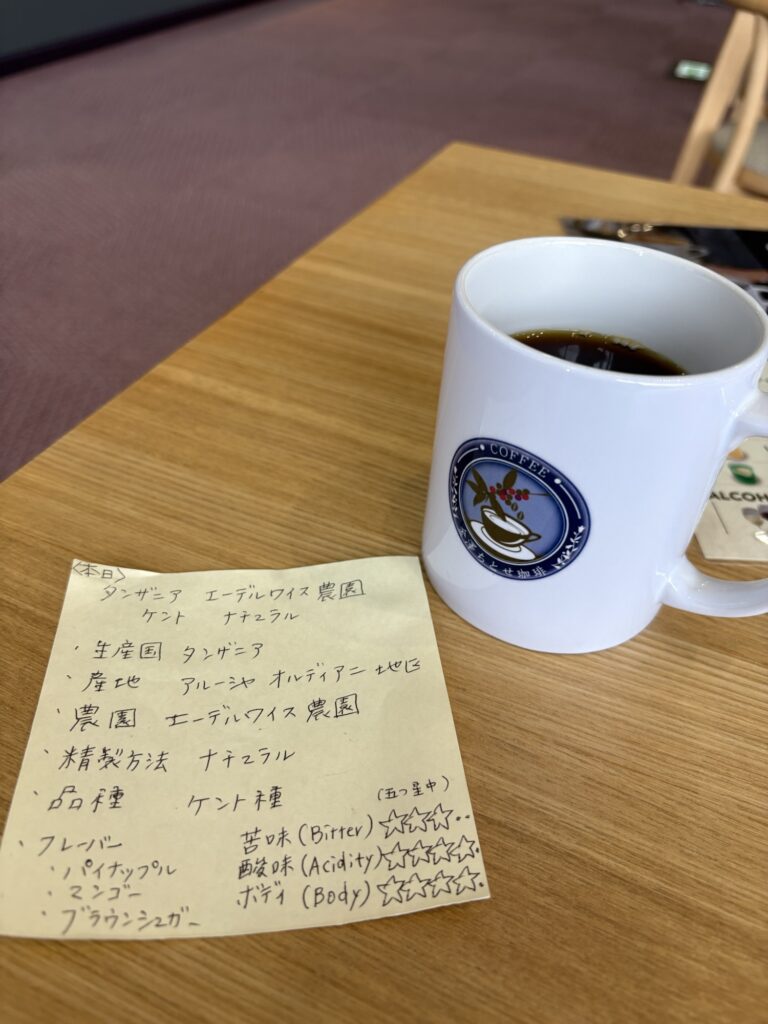 <本日>
タンザニア エーデルワイス農園
ケント ナチュラル
・生産国 タンザニア
・産地 アルーシャ オルディアニ地区
・農園 エーデルワイス農園
・精製方法 ナチュラル
・品種 ケント種
(五つ星中)
・フレーバー 苦味(Bitter)☆☆☆・・
・パイナップル 酸味(Acidity)☆☆☆☆・
・マンゴー ボディ(Body)☆☆☆☆・
・ブラウンシュガー
COFFEE
ちとせ珈琲
ALCOH